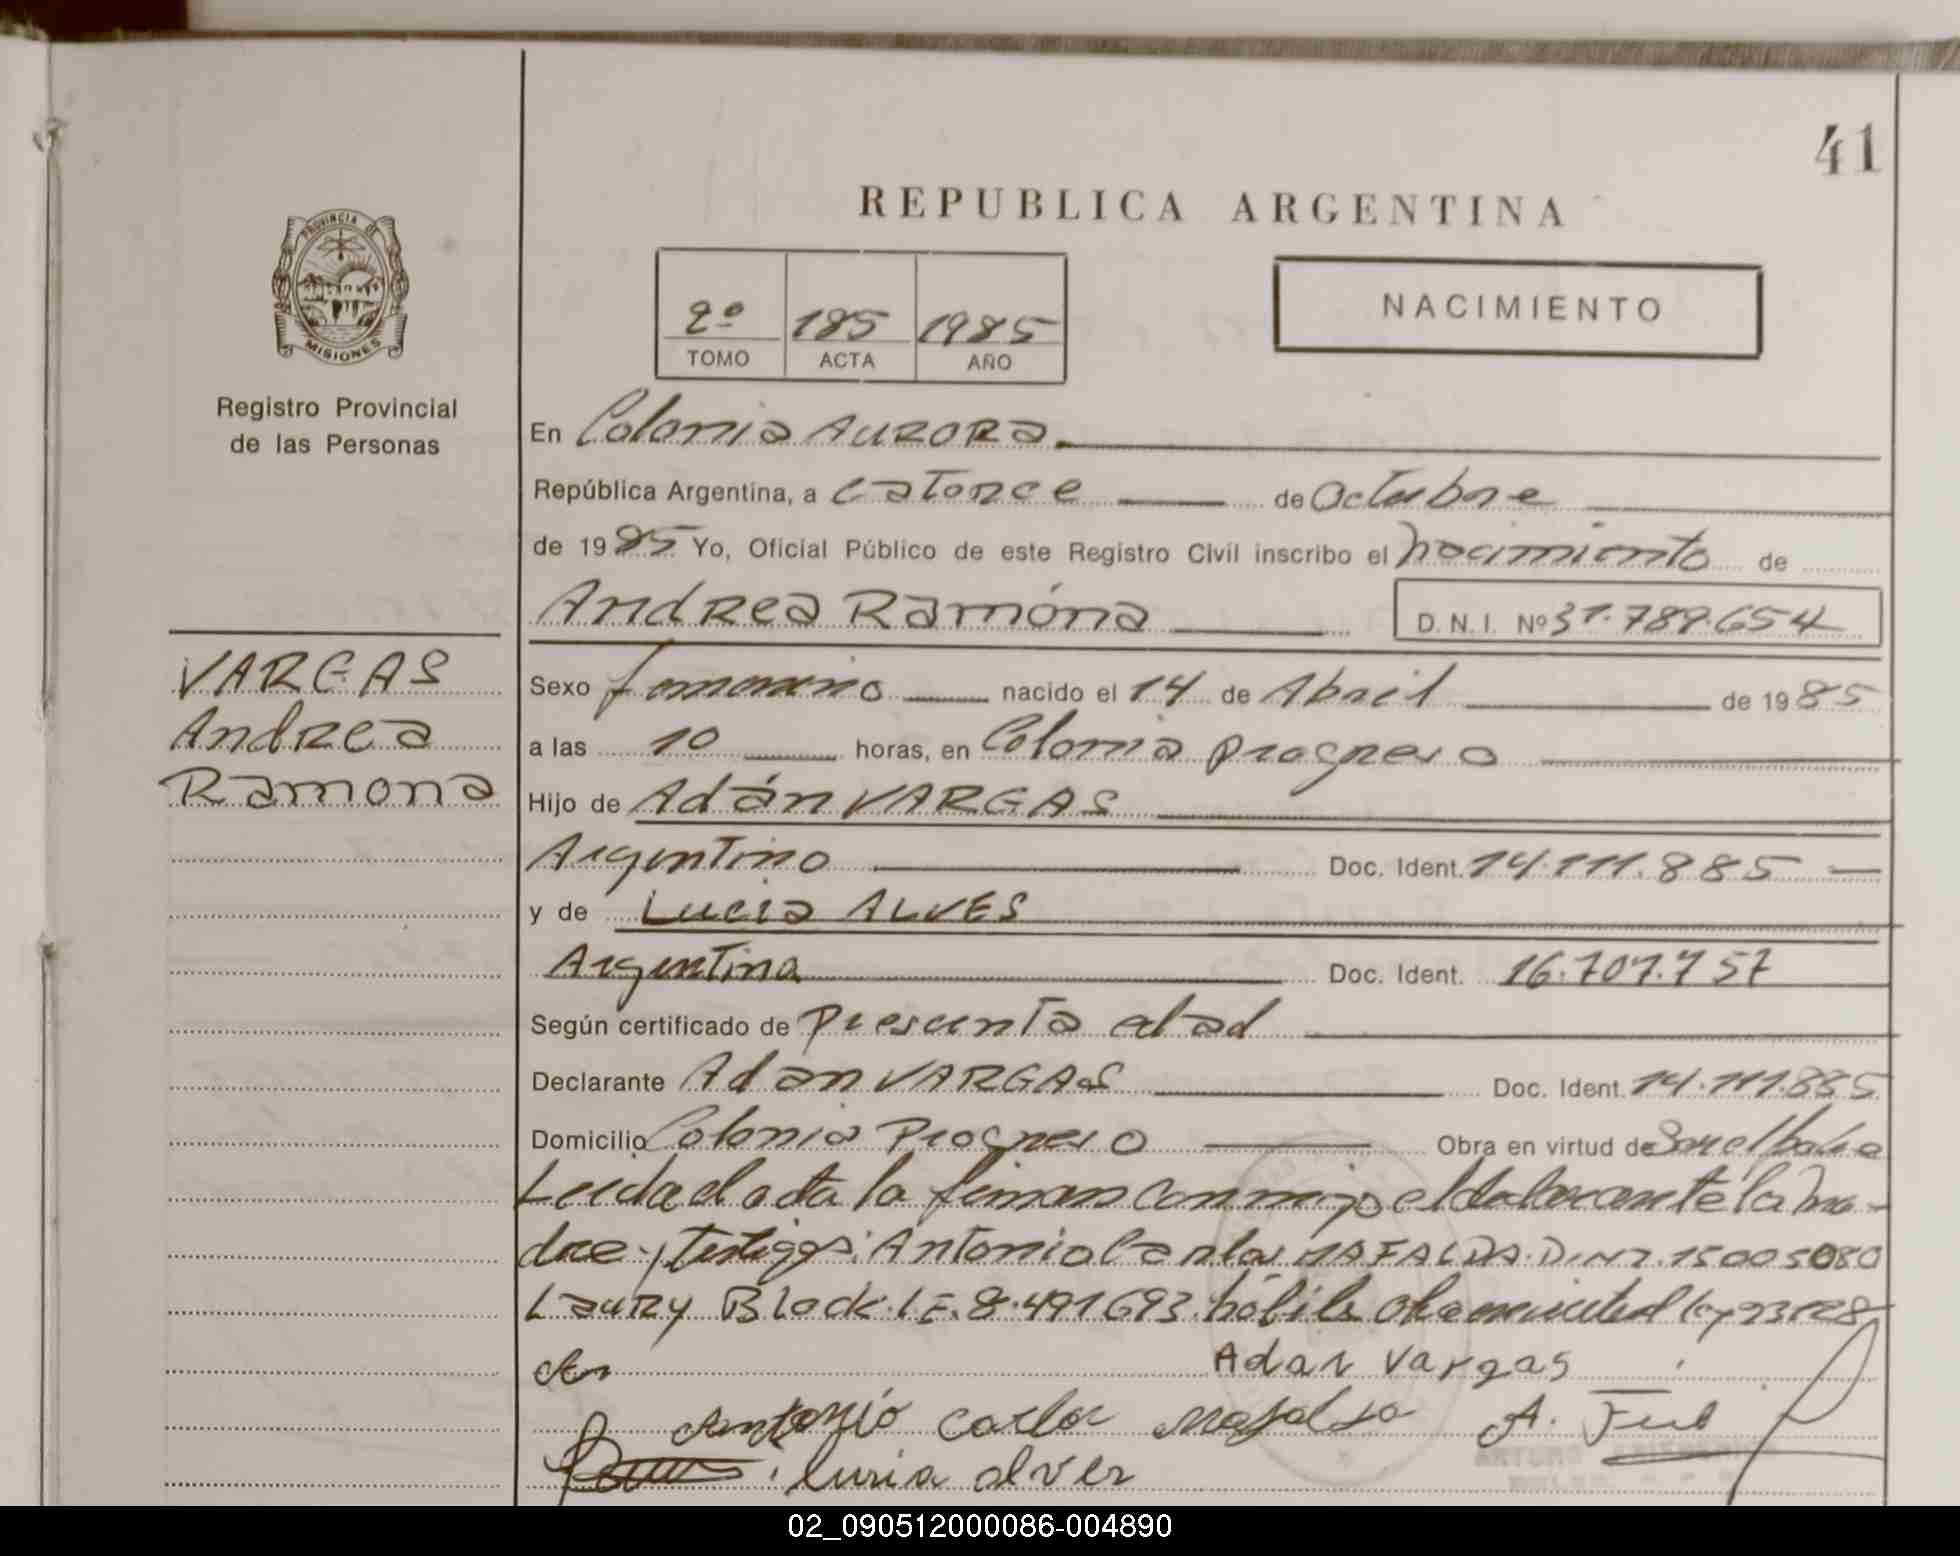 41
REPUBLICA ARGENTINA
PROVINCIA DE
MISIONES
Registro Provincial
de las Personas
2º 185 1985
TOMO ACTA AÑO
NACIMIENTO
En Colonia Aurora.
República Argentina, a catorce de Octubre
de 1985 Yo, Oficial Público de este Registro Civil inscribo el nacimiento de
Andrea Ramóna D. N. I. Nº 31.789.654
VARGAS
Andrea
Ramona
Sexo femenino nacido el 14 de Abril de 1985
a las 10 horas, en Colonia progreso
Hijo de Adán VARGAS
Argentino Doc. Ident. 14.111.885
y de Lucia ALVES
Argentina Doc. Ident. 16.707.757
Según certificado de Presunta edad
Declarante Adan VARGAS Doc. Ident. 14.111.885
Domicilio Colonia Progreso Obra en virtud de
Leida el acta la firman conmigo el declarante la ma-
dre y testigos: Antonio Carlos MAFALDA. D.N.I. 15005080
Laury Block. L.E. 8.491693. hábiles ley 23128
Adan Vargas
Antonio Carlos Mafalda A.
luria alves
ARTURO
02_090512000086-004890